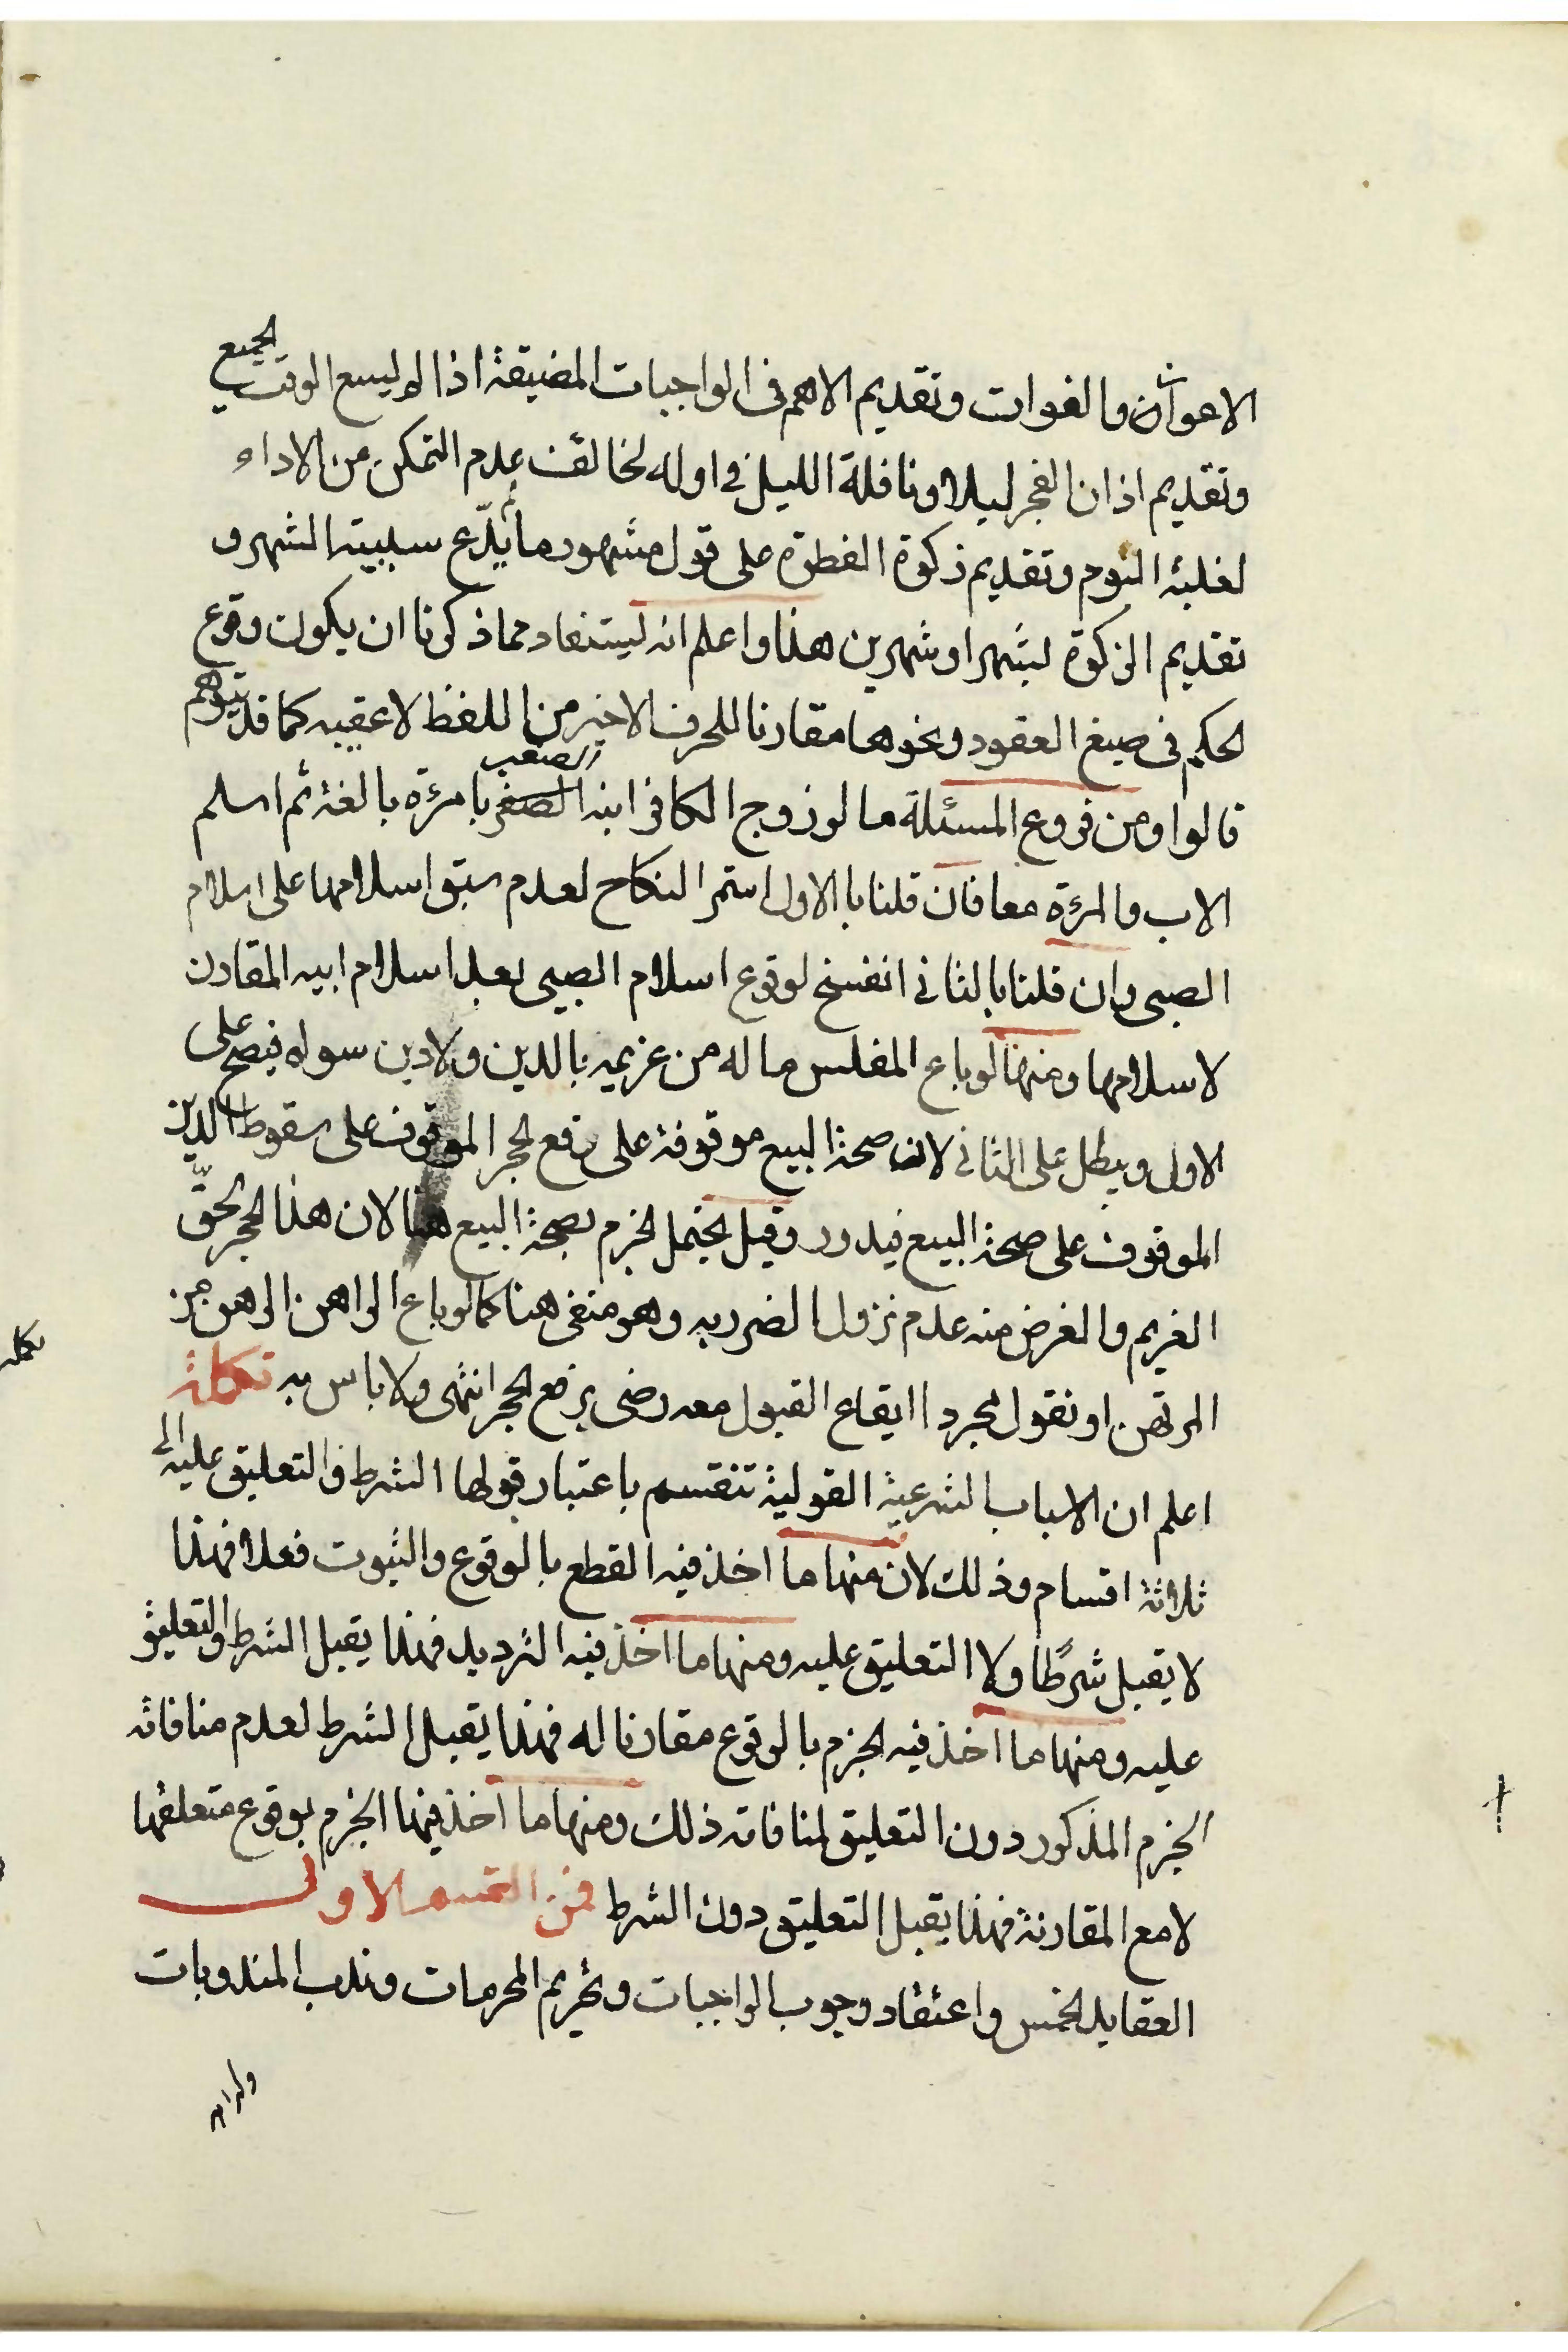 الاعواز والفوات وتقديم الاهم فى الواجبات المضيقة اذا لم يسع الوقت لجميع
وتقديم اذان الفجر ليلا ونافلة الليل فى اوله لخائف عدم التمكن من الاداء
لغلبة النوم وتقديم زكوة الفطرة على قول مشهور ما لم يدّع سببية الشهر و
تقديم الزكوة لشهر او شهرين هذا واعلم انه ليستفاد مما ذكرنا ان يكون وقوع
الحكم فى صيغ العقود ونحوها مقارنا للحرف الاخير من اللفظ لا عقيبه كما قد يتوهم
قالوا ومن فروع المسئلة ما لو زوج الكافر ابنه الصغير بامرءة بالغة ثم اسلم
الاب والمرءة معا فان قلنا بالاول استمر النكاح لعدم سبق اسلامها على اسلام
الصبى وان قلنا بالثانى انفسخ لوقوع اسلام الصبى بعد اسلام ابيه المقارن
لاسلامها ومنها لو باع المفلس ماله من غريمه بالدين ولا دين سواه فيصح على
الاول ويبطل على الثانى لان صحة البيع موقوفة على رفع الحجر الموقوف على سقوط الدين
الموقوف على صحة البيع فيدور وقيل يحتمل الجزم بصحة البيع هنا لان هذا الحجر لحقّ
الغريم والغرض منه عدم نزول الضرر به وهو منفى هنا كما لو باع الراهن الرهن من
المرتهن او نقول بمجرد ايقاع القبول معه رضى برفع الحجر انتهى ولا باس به تكملة
اعلم ان الاسباب الشرعية القولية تنقسم باعتبار قبولها الشرط والتعليق عليه الى
ثلاثة اقسام وذلك لان منها ما اخذ فيه القطع بالوقوع والثبوت فعلا فهذا
لا يقبل شرطًا ولا التعليق عليه ومنها ما اخذ فيه الترديد فهذا يقبل الشرط والتعليق
عليه ومنها ما اخذ فيه الجزم بالوقوع مقارنا له فهذا يقبل الشرط لعدم منافاته
الجزم المذكور دون التعليق لمنافاته ذلك ومنها ما اخذ فيها الجزم بوقوع متعلقها
لا مع المقارنة فهذا يقبل التعليق دون الشرط فمن القسم الاول
العقايد الخمس واعتقاد وجوب الواجبات وتحريم المحرمات وندب المندوبات